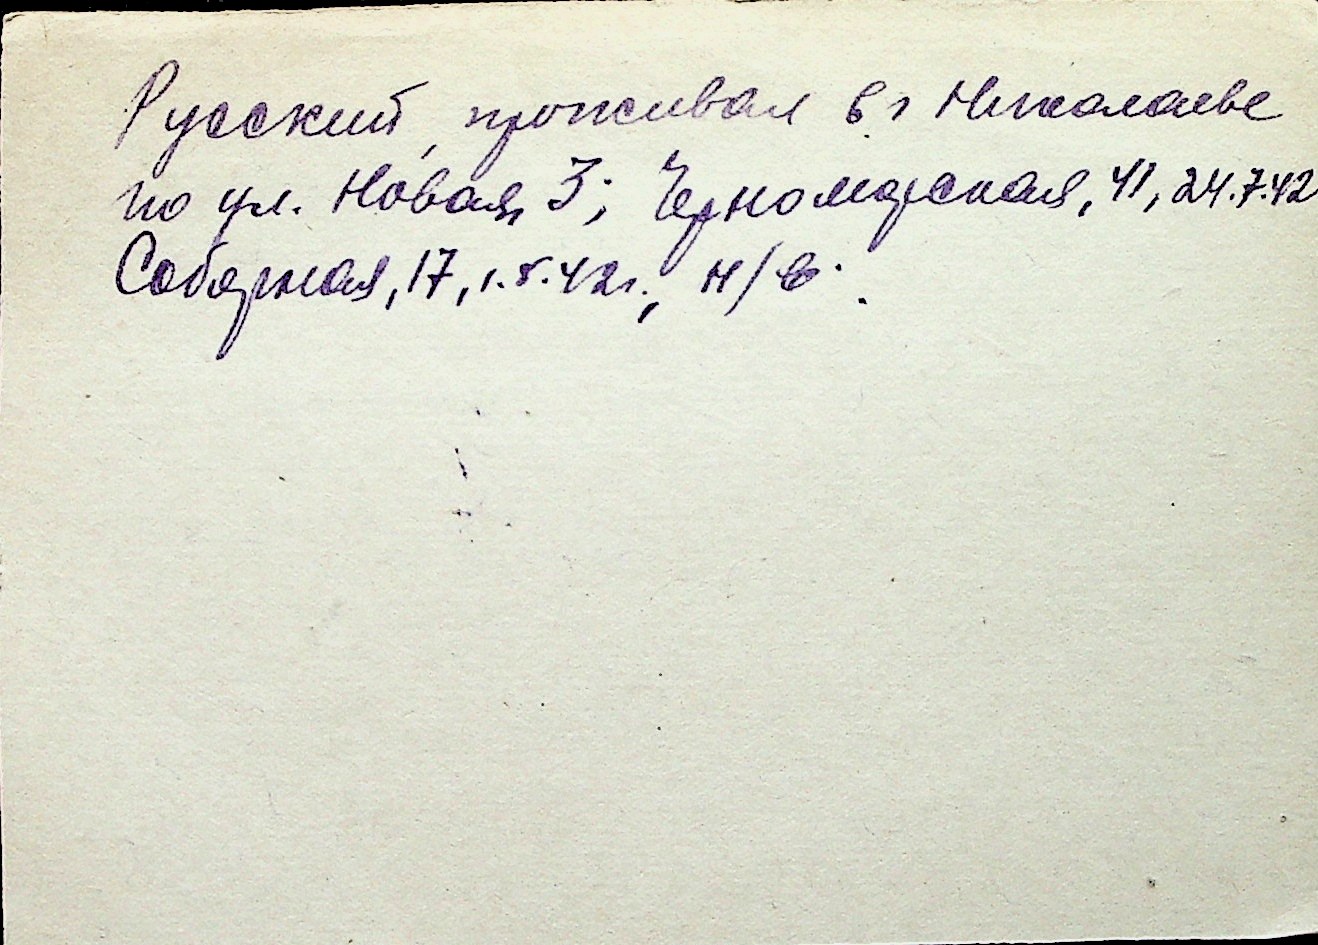 Русский, проживал в г Николаеве
по ул. Новая, 3; Черноморская, 41, 24.7.42
Соборная, 17, 1.8.42г., н/в.